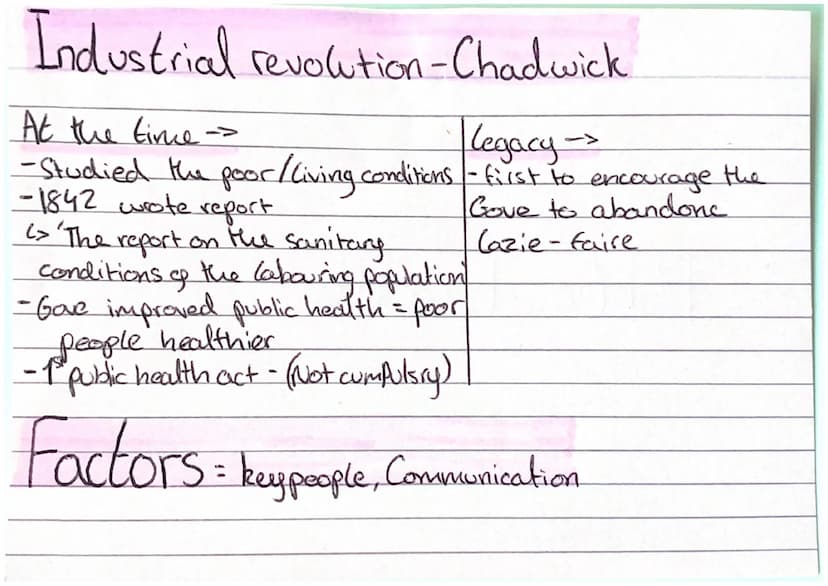 Industrial revolution - Chadwick
At the time ->
- Studied the poor/living conditions
- 1842 wrote report
↳ 'The report on the sanitary
conditions of the labouring population
- Gov improved public health = poor
people healthier
- 1st public health act - (Not cumpulsry)
Legacy ->
- first to encourage the
Gove to abandone
lazie-faire
Factors = key people, Communication